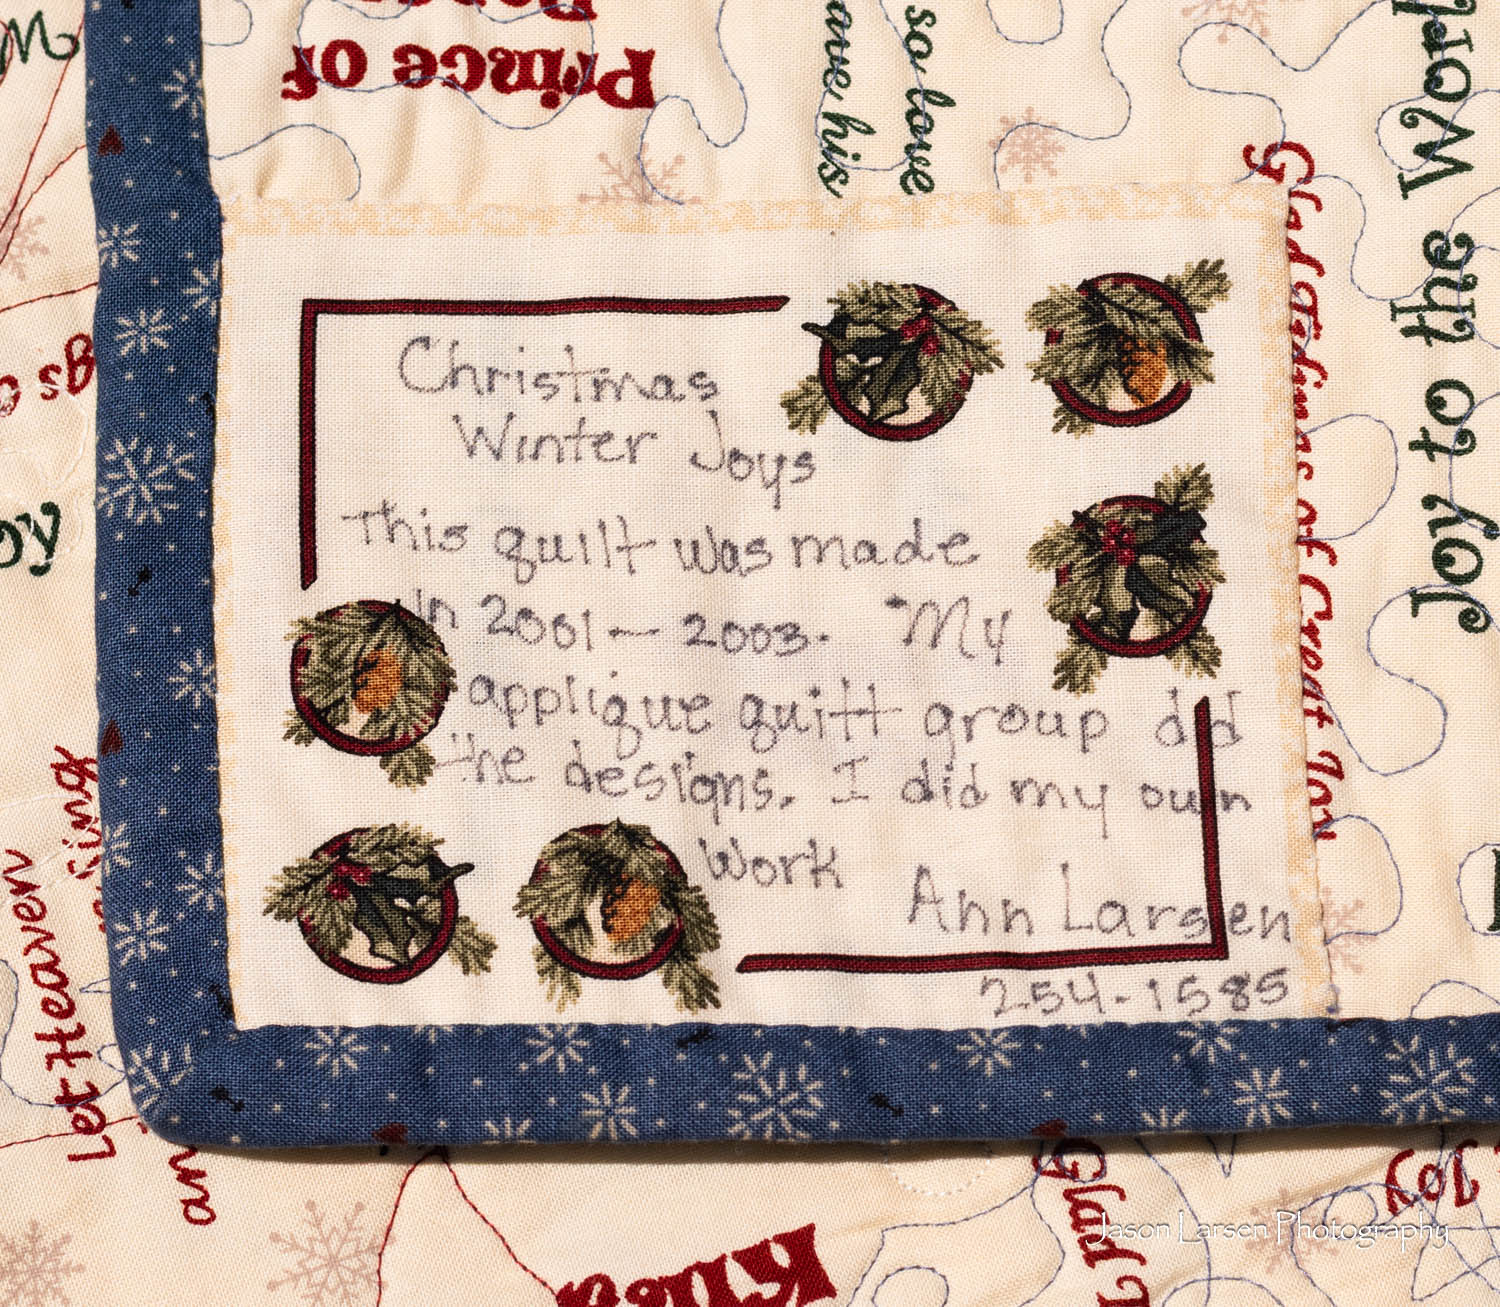 Prince of
so love
his
Joy to the World
Glad Tidings of Great Joy
Christmas
Winter Joys
This quilt was made
in 2001 — 2003. My
applique quilt group did
the designs. I did my own
work
Ann Larsen
254-1585
Let Heaven
and
King
Joy
Jason Larsen Photography